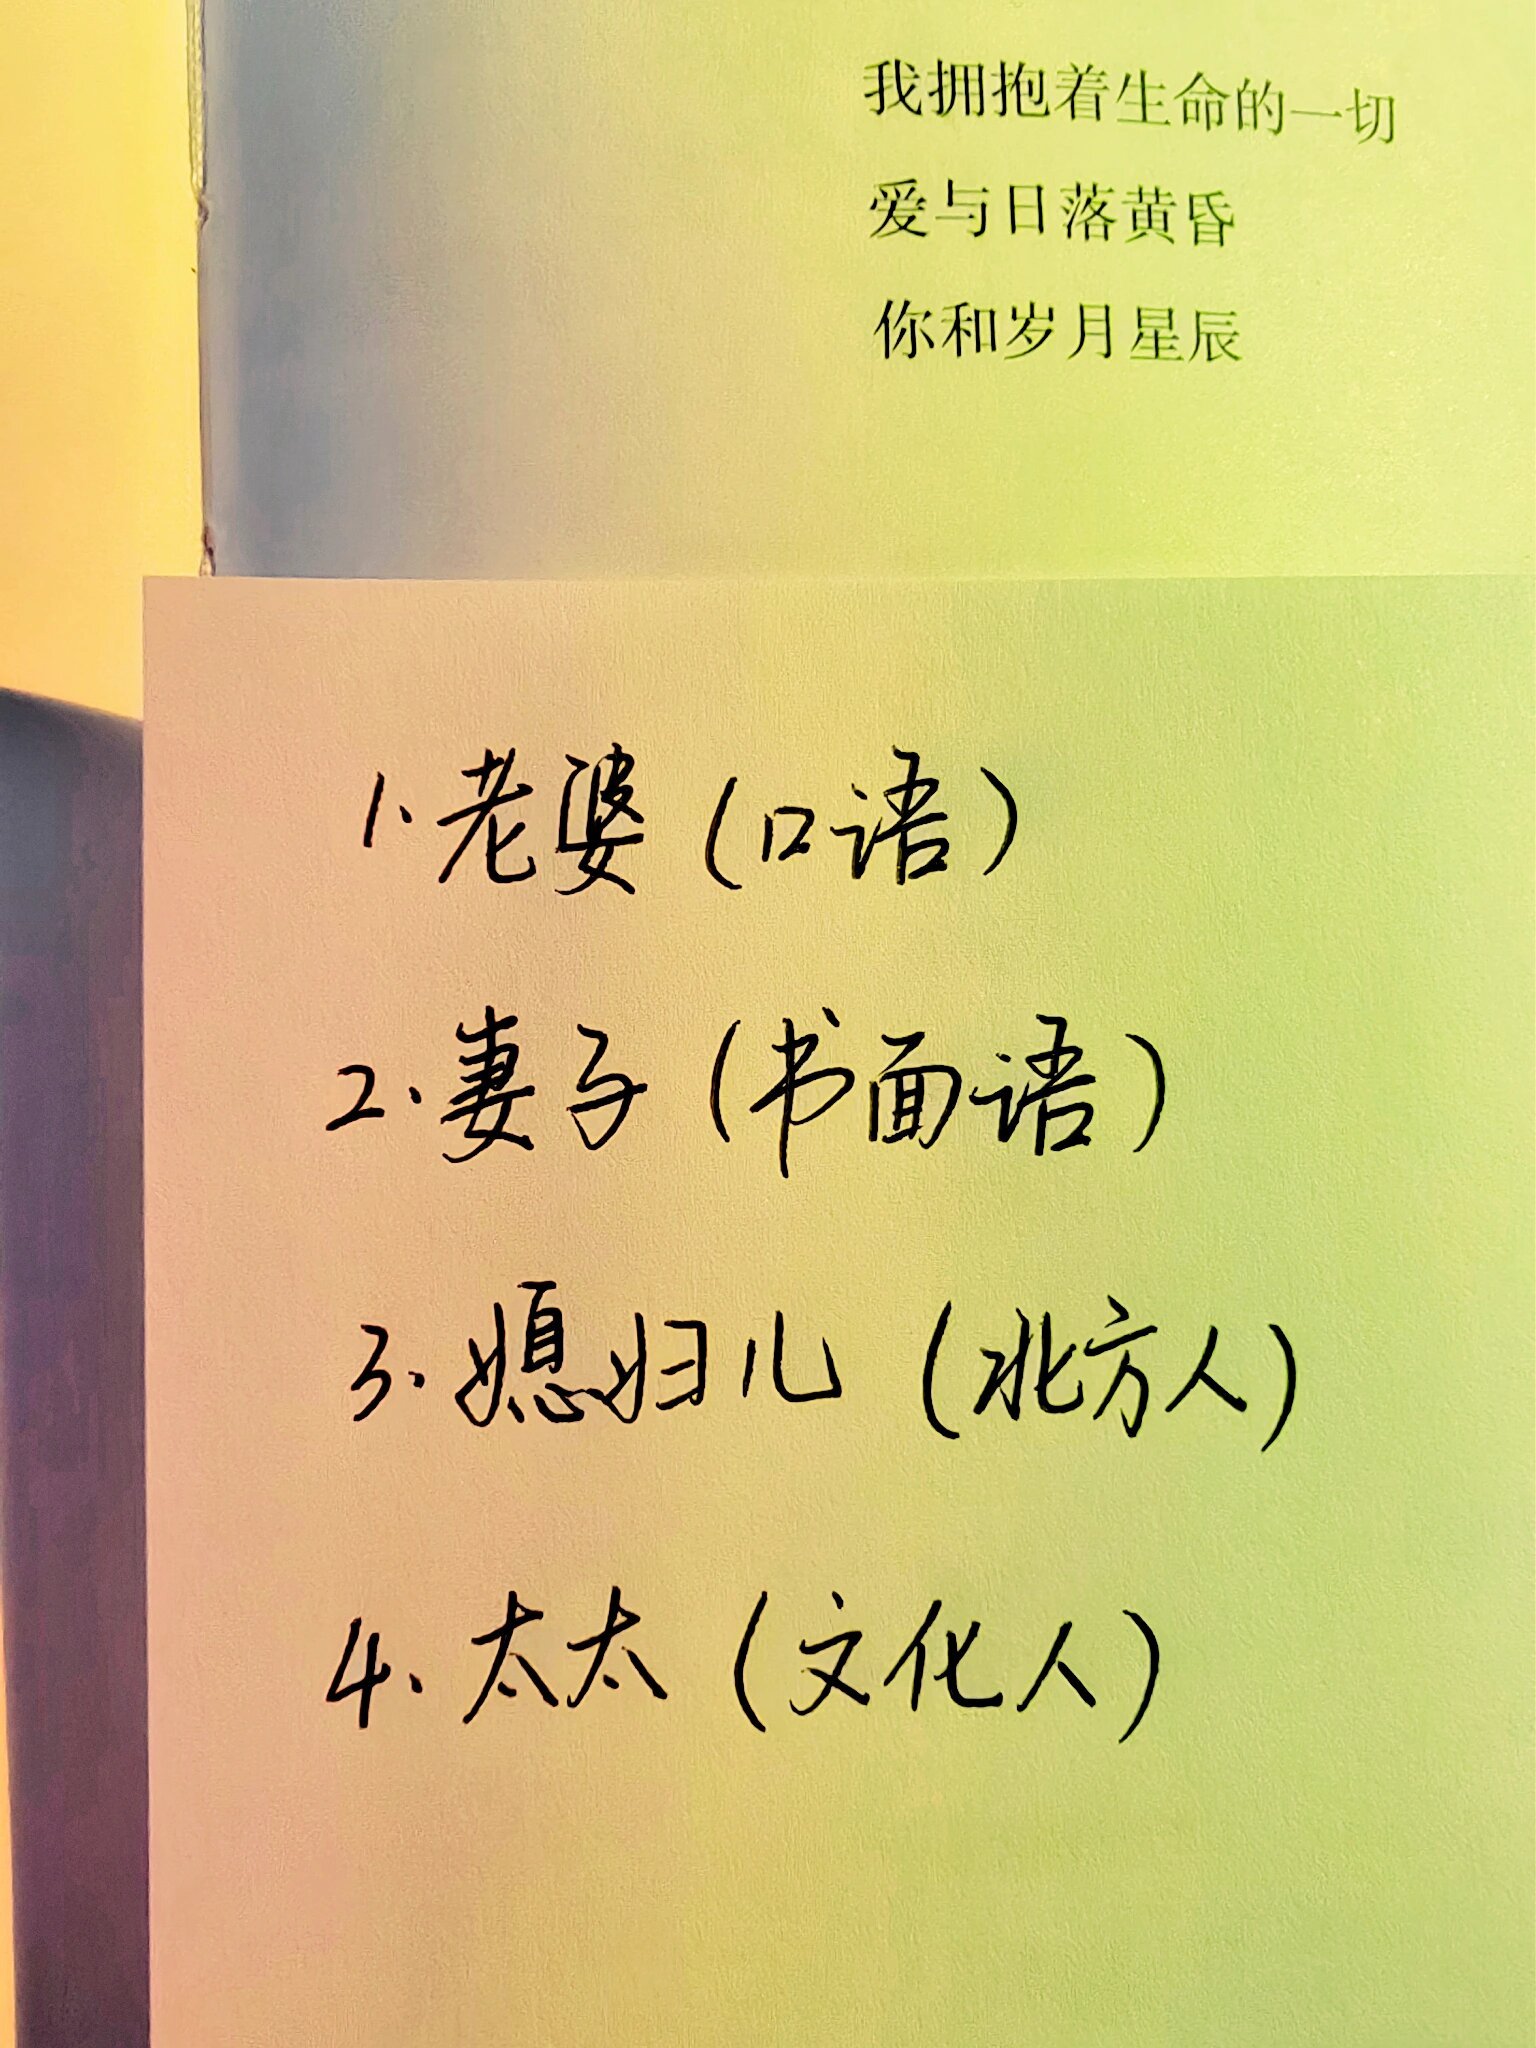 我拥抱着生命的一切
爱与日落黄昏
你和岁月星辰
1.老婆(口语)
2.妻子(书面语)
3.媳妇儿(北方人)
4.太太(文化人)